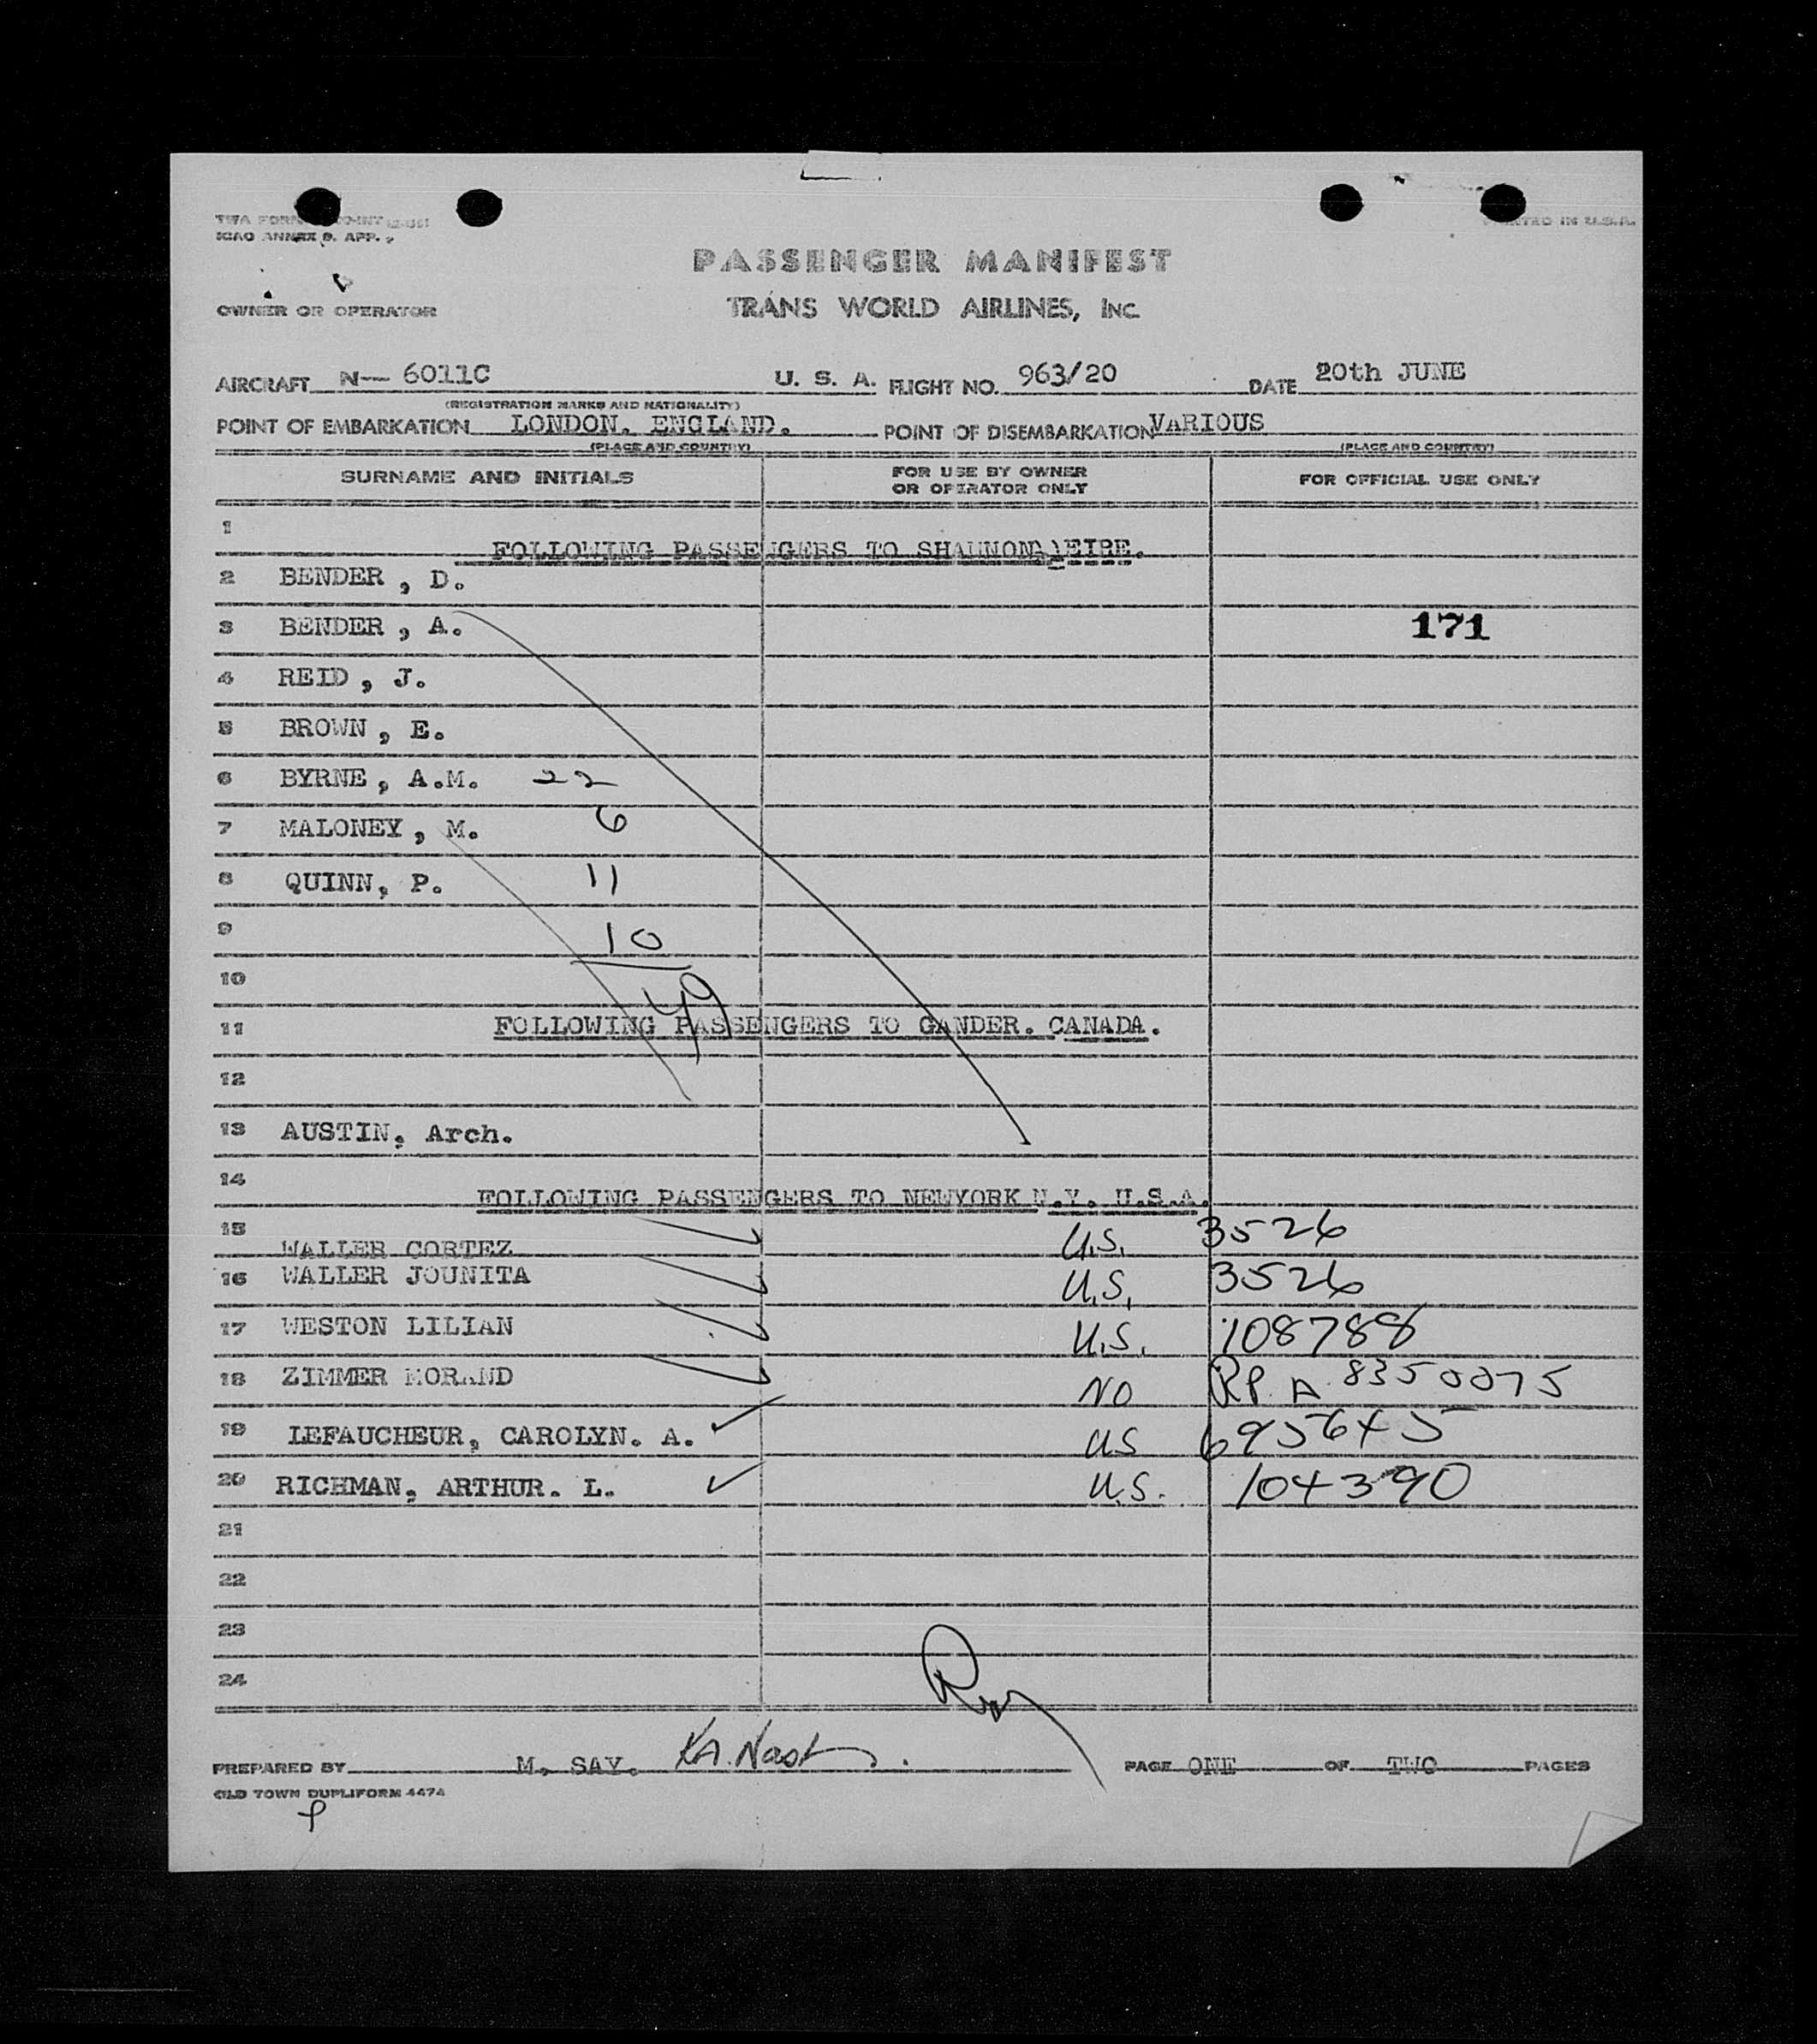 TWA FORM
ICAO ANNEX 9. APP.
PRINTED IN U.S.A.
PASSENGER MANIFEST
OWNER OR OPERATOR
TRANS WORLD AIRLINES, INC.
AIRCRAFT N-- 6011C U. S. A. FLIGHT NO. 963/20 DATE 20th JUNE
(REGISTRATION MARKS AND NATIONALITY)
POINT OF EMBARKATION LONDON. ENGLAND. POINT OF DISEMBARKATION VARIOUS
(PLACE AND COUNTRY) (PLACE AND COUNTRY)
SURNAME AND INITIALS FOR USE BY OWNER OR OPERATOR ONLY FOR OFFICIAL USE ONLY
1 FOLLOWING PASSENGERS TO SHANNON EIRE.
2 BENDER, D.
3 BENDER, A. 171
4 REID, J.
5 BROWN, E.
6 BYRNE, A.M. 22
7 MALONEY, M. 6
8 QUINN, P. 11
9 10
10 49
11 FOLLOWING PASSENGERS TO GANDER. CANADA.
12
13 AUSTIN, Arch.
14 FOLLOWING PASSENGERS TO NEWYORK N.Y. U.S.A.
15 WALLER CORTEZ U.S. 3526
16 WALLER JOUNITA U.S. 3526
17 WESTON LILIAN U.S. 108788
18 ZIMMER MORAND NO RP. A 8350075
19 LEFAUCHEUR, CAROLYN. A. US 695645
20 RICHMAN, ARTHUR. L. U.S. 104390
21
22
23
24
PREPARED BY M. SAY. PAGE ONE OF TWO PAGES
OLD TOWN DUPLIFORM 4474